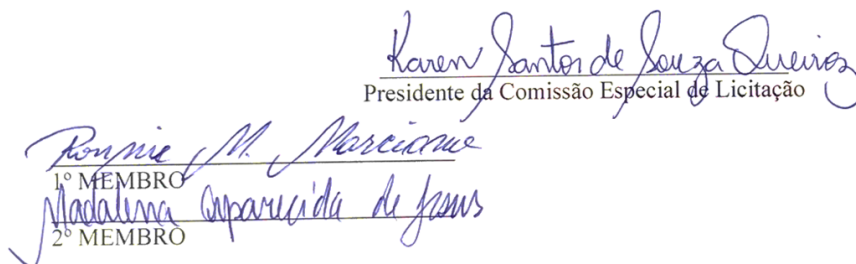 Karen Santos de Souza Queiroz
Presidente da Comissão Especial de Licitação
Ronnie M. Marciano
1º MEMBRO
Madalena Aparecida de Jesus
2º MEMBRO